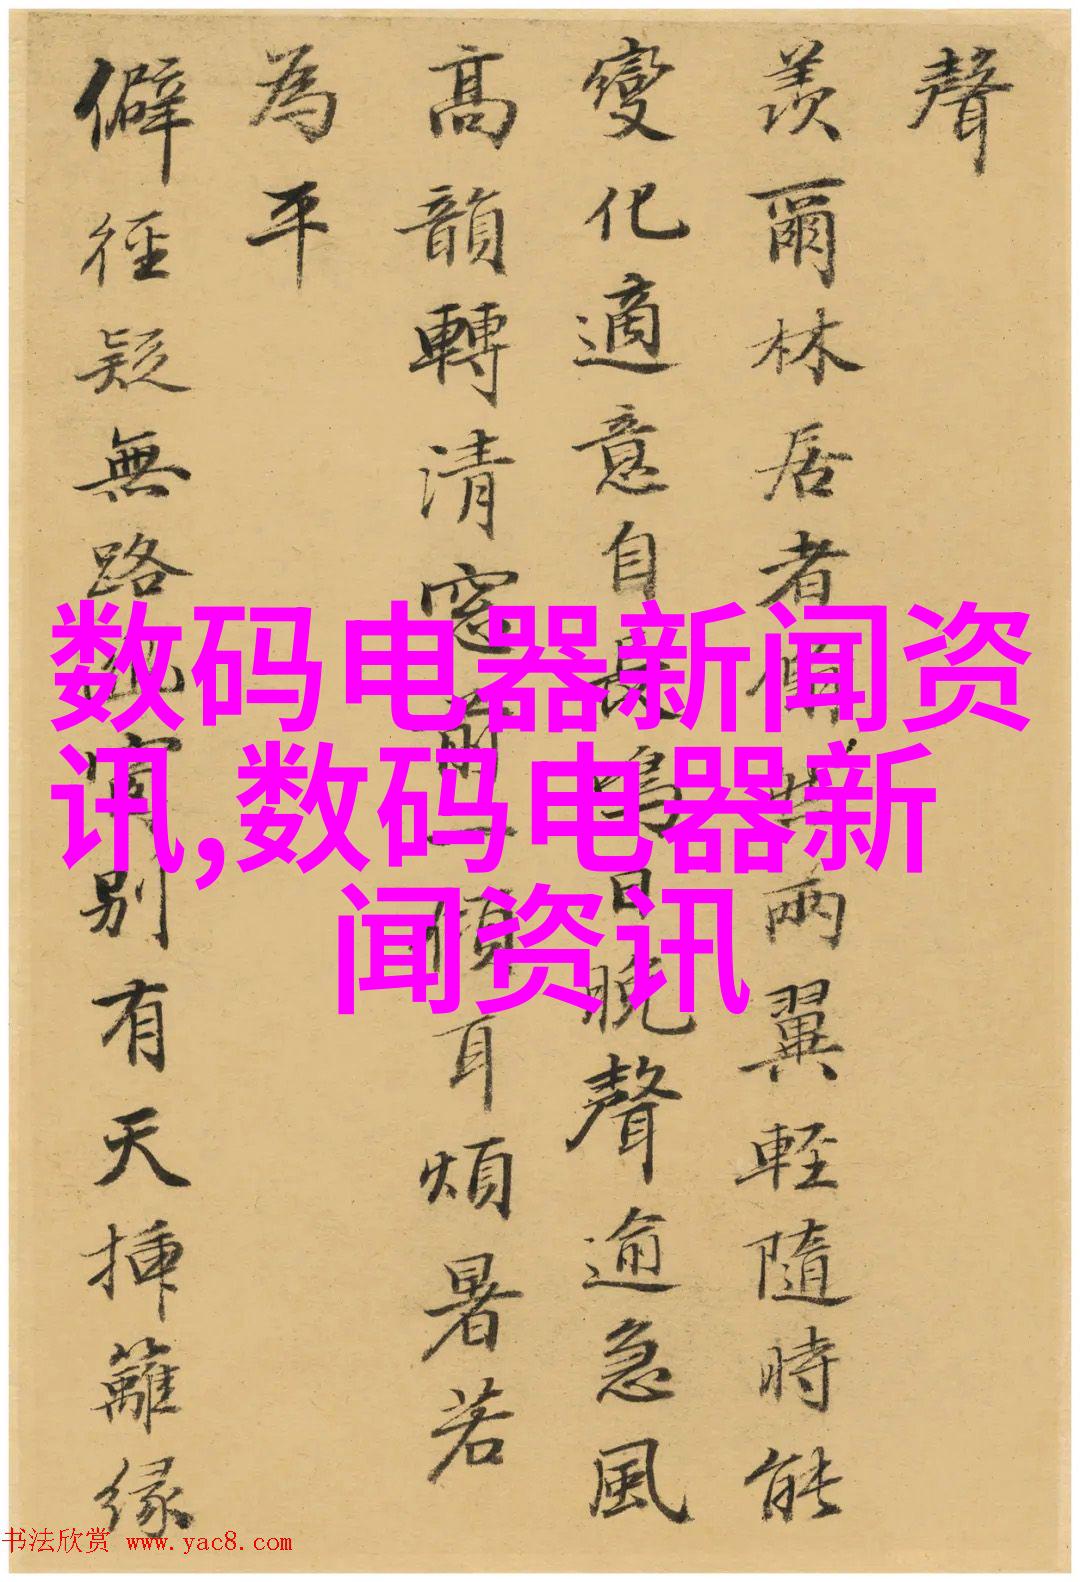 聲
羨爾林居者 兩翼輕隨時能
變化適意自 日晚聲逾急風
高韻轉清窓前一傾耳煩暑若
為平
僻徑疑無路 別有天揷籬緣
数码电器新闻资
讯,数码电器新
闻资讯
书法欣赏 www.yac8.com